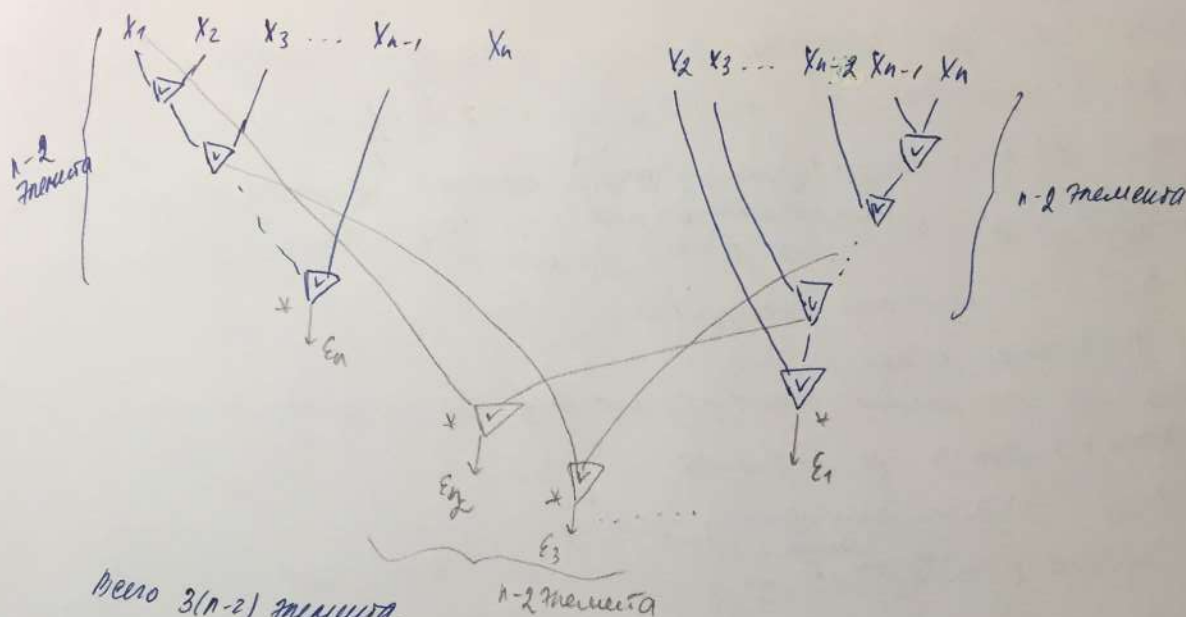 X1 X2 X3 ... Xn-1 Xn
X2 X3 ... Xn-2 Xn-1 Xn
n-2
элемента
n-2 элемента
∨
∨
∨
∨
∨
∨
∨
∨
∨
* εn
*
*
ε3
......
*
ε1
n-2 элемента
Всего 3(n-2) элемента